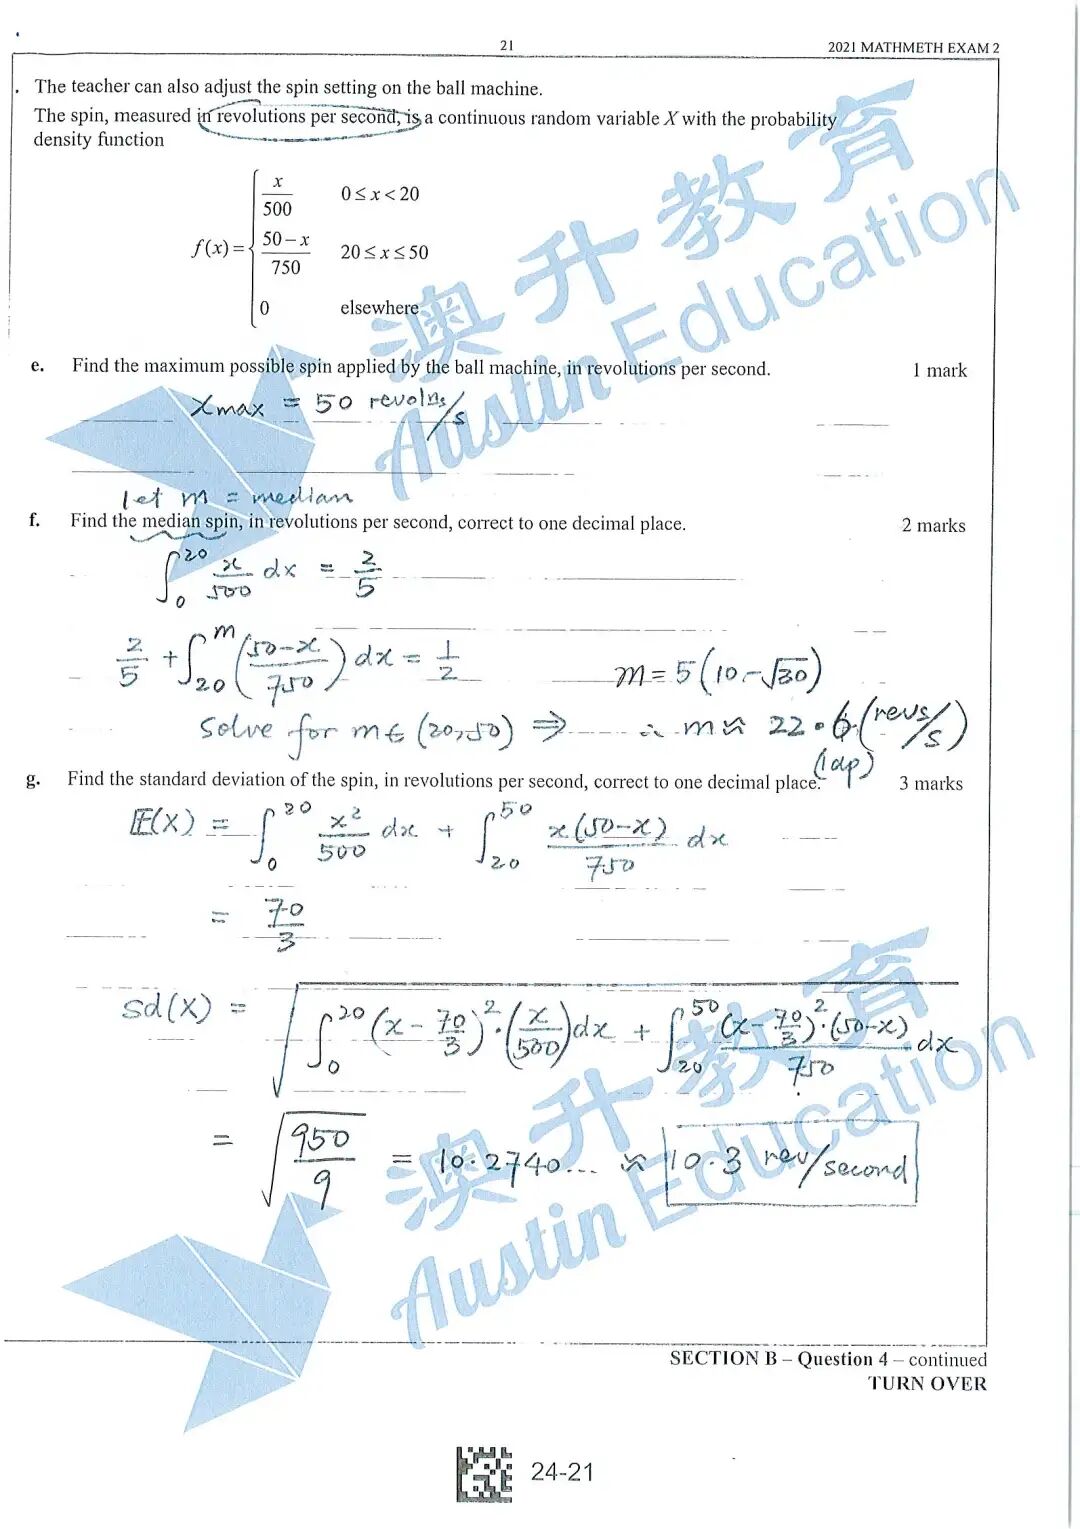 21
2021 MATHMETH EXAM 2
The teacher can also adjust the spin setting on the ball machine.
The spin, measured in revolutions per second, is a continuous random variable X with the probability
density function
f(x) = { x/500 0 ≤ x < 20
(50 – x)/750 20 ≤ x ≤ 50
0 elsewhere
e. Find the maximum possible spin applied by the ball machine, in revolutions per second. 1 mark
x max = 50 revolns/s
let m = median
f. Find the median spin, in revolutions per second, correct to one decimal place. 2 marks
∫₀²⁰ x/500 dx = 2/5
2/5 + ∫₂₀ᵐ ((50-x)/750) dx = 1/2 m = 5(10-√30)
Solve for m ∈ (20,50) ⇒ ∴ m ≈ 22.6 (revs/s)
(1dp)
g. Find the standard deviation of the spin, in revolutions per second, correct to one decimal place. 3 marks
E(X) = ∫₀²⁰ x²/500 dx + ∫₂₀⁵⁰ x(50-x)/750 dx
= 70/3
sd(X) = √(∫₀²⁰ (x - 70/3)²·(x/500)dx + ∫₂₀⁵⁰ (x - 70/3)²·(50-x)/750 ·dx)
= √(950/9) = 10.2740... ≈ 10.3 rev/second
SECTION B – Question 4 – continued
TURN OVER
24-21
澳升教育
Austin Education
澳升教育
Austin Education